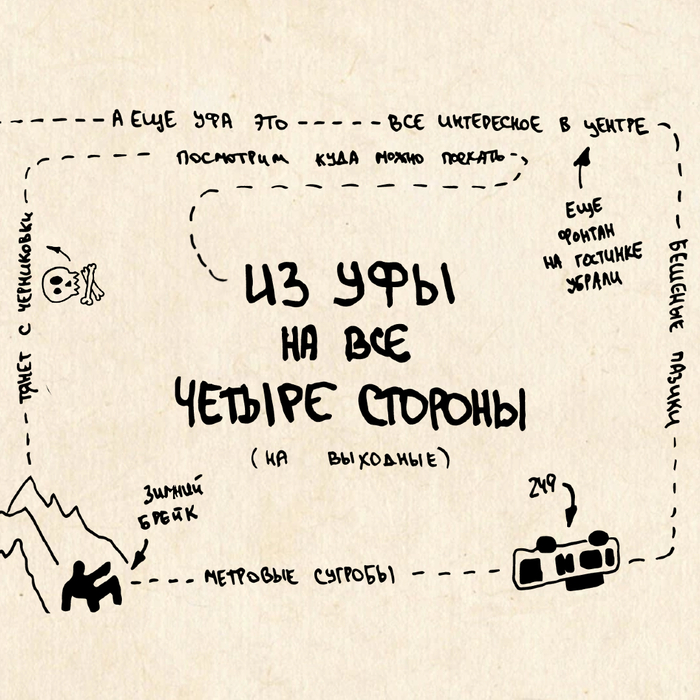 А ЕЩЕ УФА ЭТО
ВСЕ ИНТЕРЕСНОЕ В ЦЕНТРЕ
ПОСМОТРИМ КУДА МОЖНО ПОЕХАТЬ
ЕЩЕ
ФОНТАН
НА ГОСТИНКЕ
УБРАЛИ
БЕШЕНЫЕ ПАЗИКИ
ТЯНЕТ С ЧЕРНИКОВКИ
ИЗ УФЫ
НА ВСЕ
ЧЕТЫРЕ СТОРОНЫ
(НА ВЫХОДНЫЕ)
ЗИМНИЙ
БРЕЙК
249
МЕТРОВЫЕ СУГРОБЫ